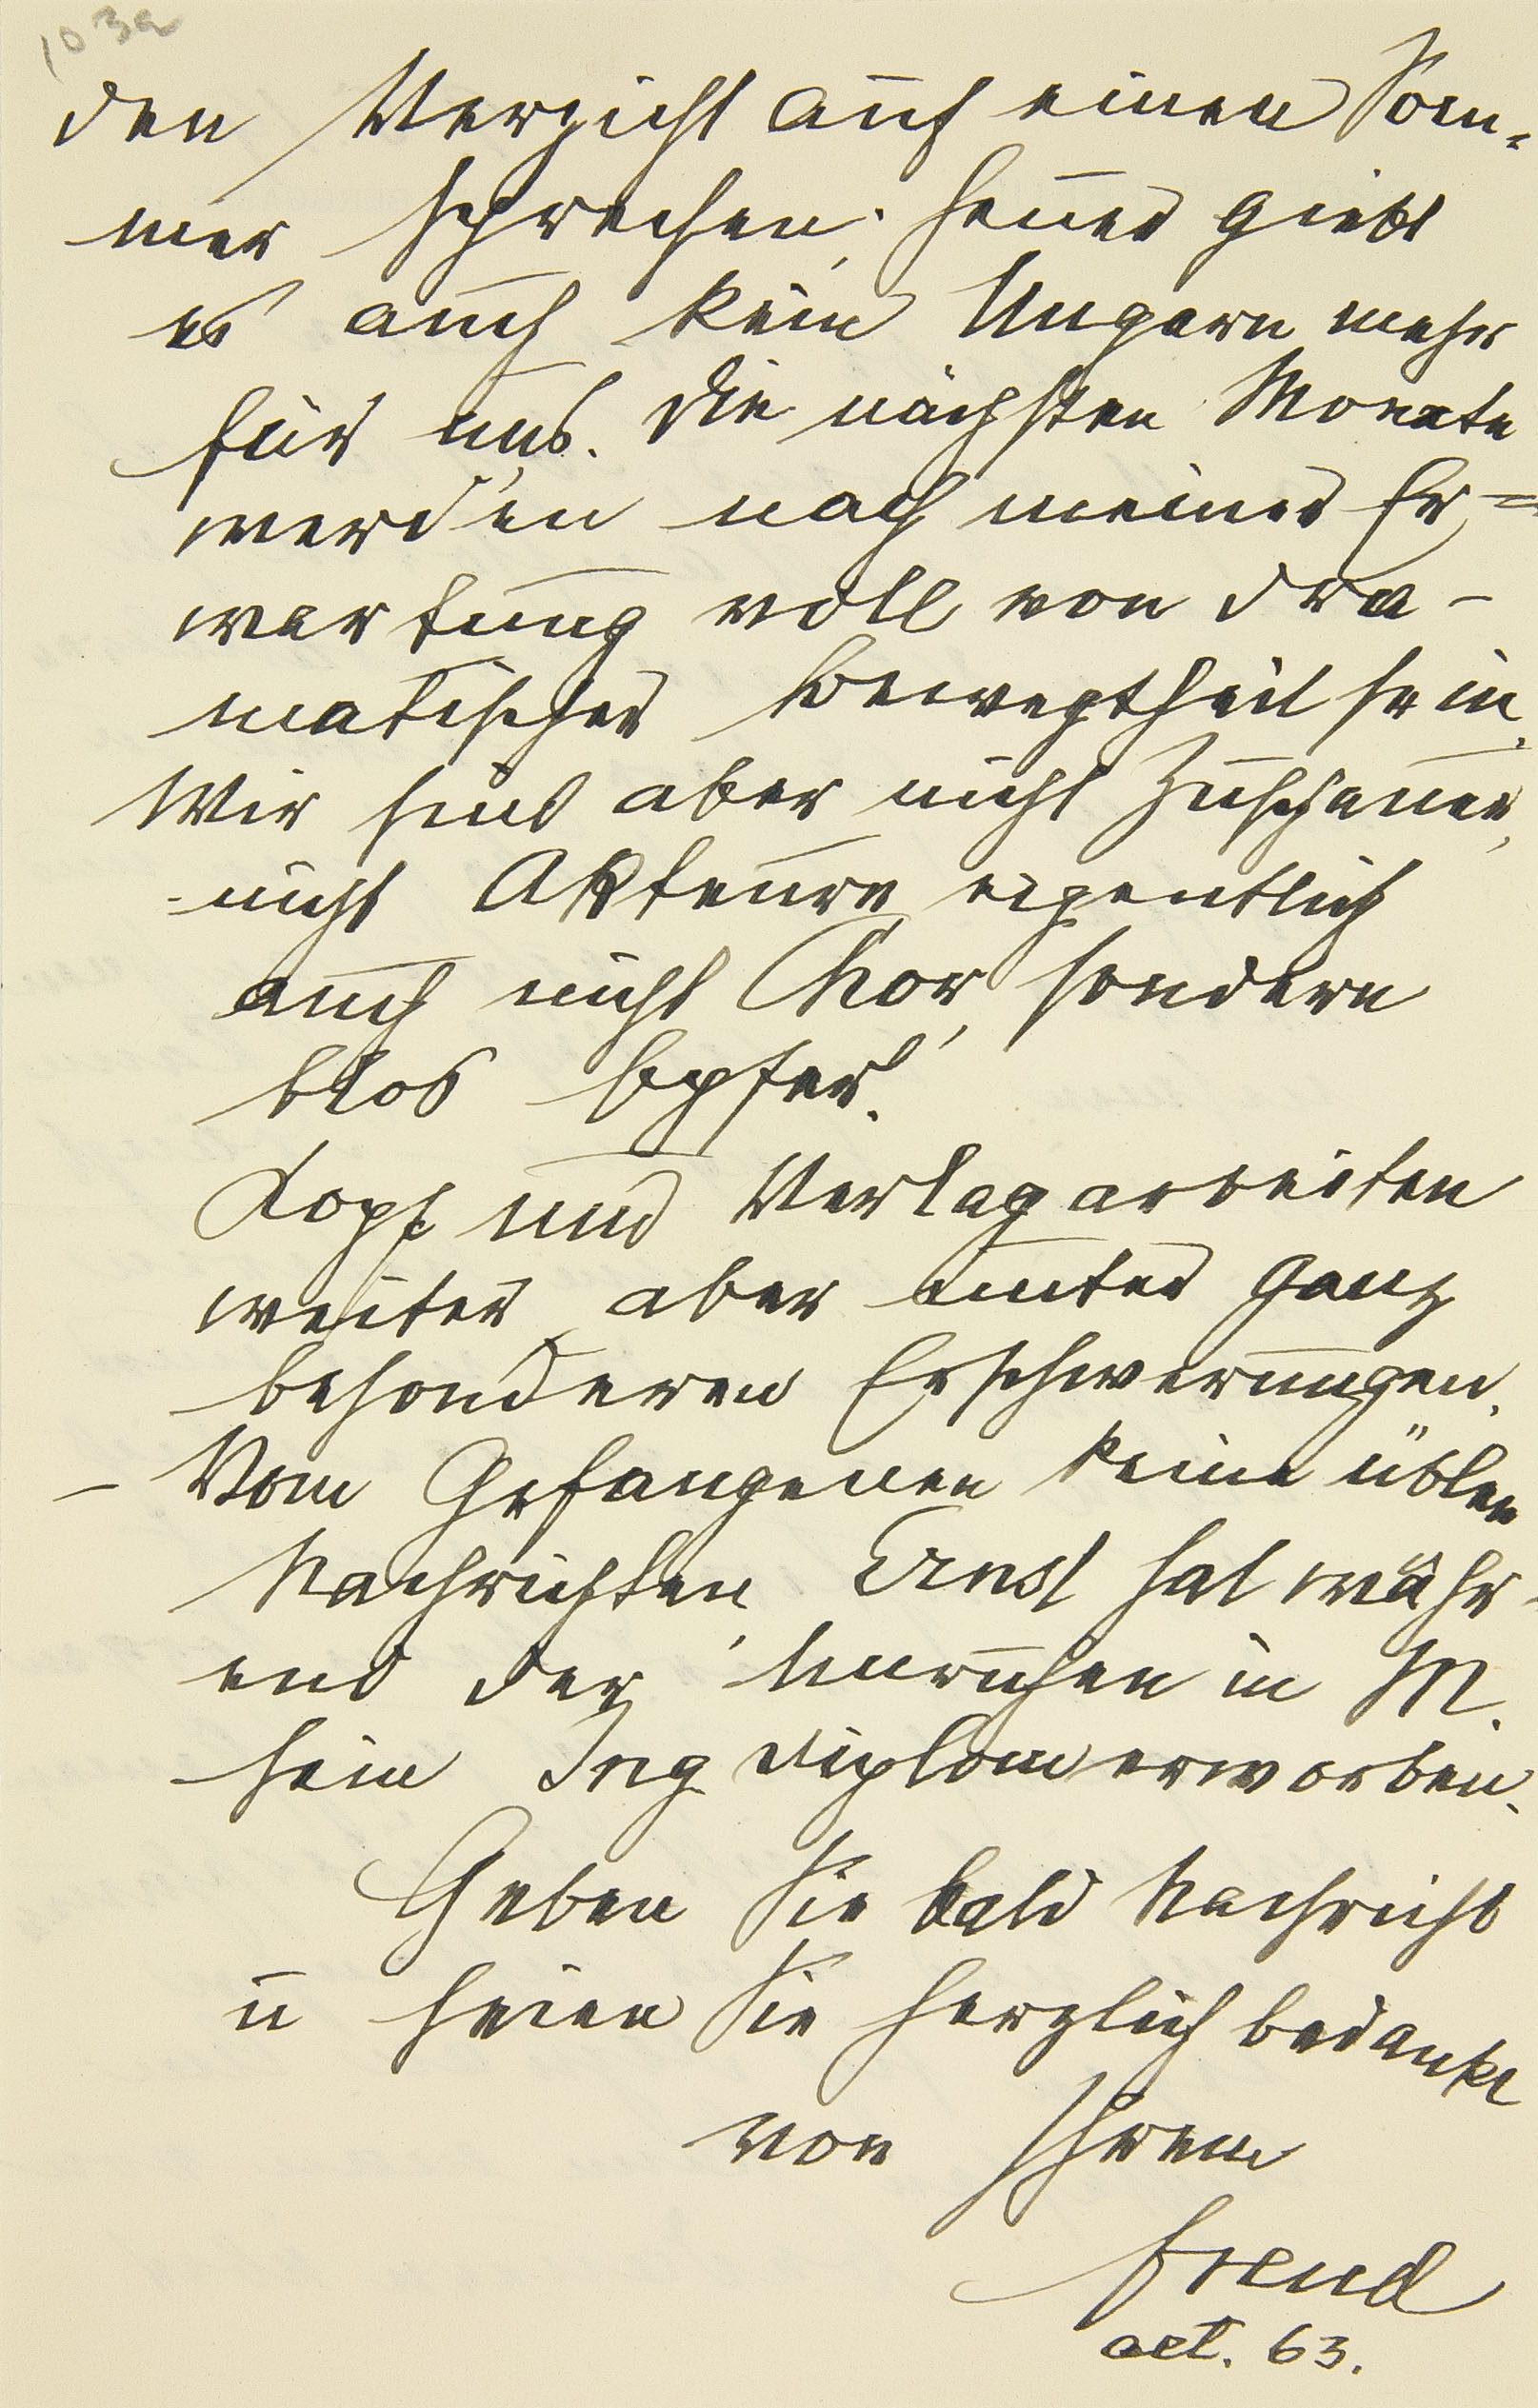 103a
den Verzicht auf einen Som-
mer sprechen; heuer giebt
es auch kein Ungarn mehr
für uns. Die nächsten Monate
werden nach meiner Er=
wartung voll von dra-
matischer Bewegtheit sein.
Wir sind aber nicht Zuschauer,
nicht Akteure, eigentlich
auch nicht Chor, sondern
blos Opfer!
Kopf und Verlag arbeiten
weiter, aber unter ganz
besonderen Erschwerungen.
– Vom Gefangenen keine üblen
Nachrichten, Ernst hat währ-
end der Unruhen in M.
sein Ing diplom erworben.
Geben Sie bald Nachricht
u seien Sie herzlich bedankt
von Ihrem
Freud
aet. 63.